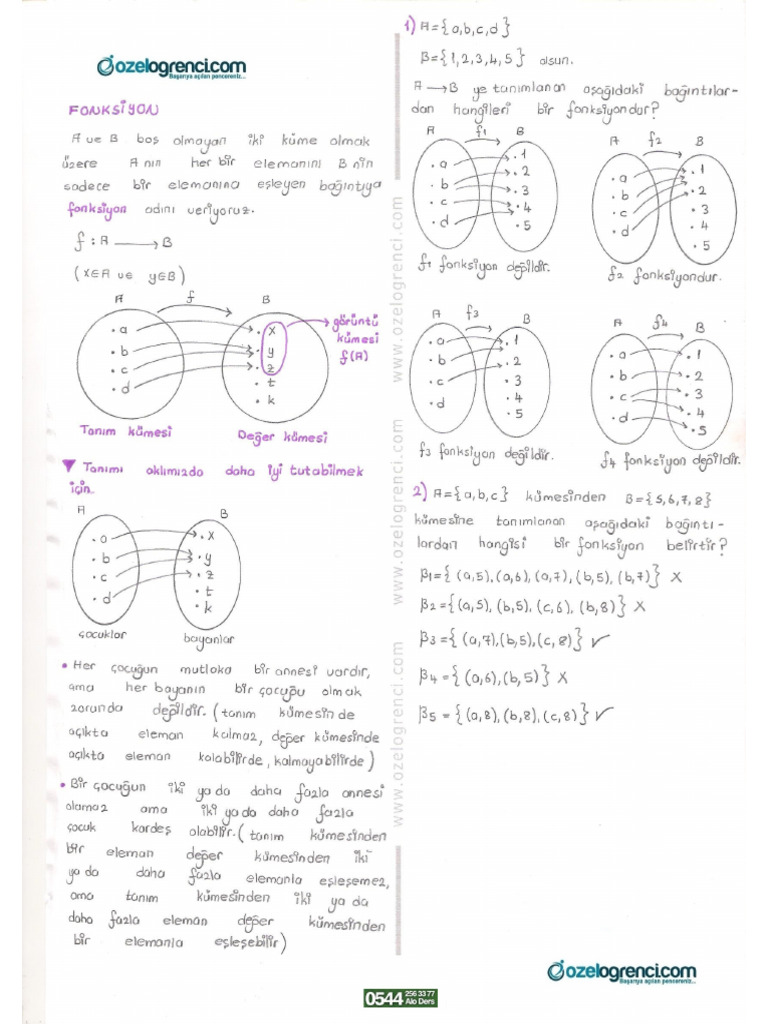 ozelogrenci.com
Başarıya açılan pencereniz...
FONKSİYON
A ve B boş olmayan iki küme olmak
üzere A nın her bir elemanını B nin
sadece bir elemanına eşleyen bağıntıya
fonksiyon adını veriyoruz.
f : A → B
(x∈A ve y∈B)
A f B
a
b
c
d
x
y
z
t
k
görüntü
kümesi
f(A)
Tanım kümesi
Değer kümesi
▼ Tanımı aklımızda daha iyi tutabilmek
için.
A B
a
b
c
d
x
y
z
t
k
çocuklar
bayanlar
• Her çocuğun mutlaka bir annesi vardır,
ama her bayanın bir çocuğu olmak
zorunda değildir. (tanım kümesinde
açıkta eleman kalmaz, değer kümesinde
açıkta eleman kalabilirde, kalmayabilirde)
• Bir çocuğun iki ya da daha fazla annesi
olamaz ama iki ya da daha fazla
çocuk kardeş olabilir. (tanım kümesinden
bir eleman değer kümesinden iki
ya da daha fazla elemanla eşleşemez,
ama tanım kümesinden iki ya da
daha fazla eleman değer kümesinden
bir elemanla eşleşebilir)
www.ozelogrenci.com
www.ozelogrenci.com
www.ozelogrenci.com
1) A={a,b,c,d}
B={1,2,3,4,5} olsun.
A → B ye tanımlanan aşağıdaki bağıntılar-
dan hangileri bir fonksiyondur?
A f1 B
a
b
c
d
1
2
3
4
5
f1 fonksiyon değildir.
A f2 B
a
b
c
d
1
2
3
4
5
f2 fonksiyondur.
A f3 B
a
b
c
d
1
2
3
4
5
f3 fonksiyon değildir.
A f4 B
a
b
c
d
1
2
3
4
5
f4 fonksiyon değildir.
2) A={a,b,c} kümesinden B={5,6,7,8}
kümesine tanımlanan aşağıdaki bağıntı-
lardan hangisi bir fonksiyon belirtir?
β1={(a,5),(a,6),(a,7),(b,5),(b,7)} X
β2={(a,5),(b,5),(c,6),(b,8)} X
β3={(a,7),(b,5),(c,8)} ✓
β4={(a,6),(b,5)} X
β5={(a,8),(b,8),(c,8)} ✓
ozelogrenci.com
Başarıya açılan pencereniz...
0544 256 33 77
Alo Ders